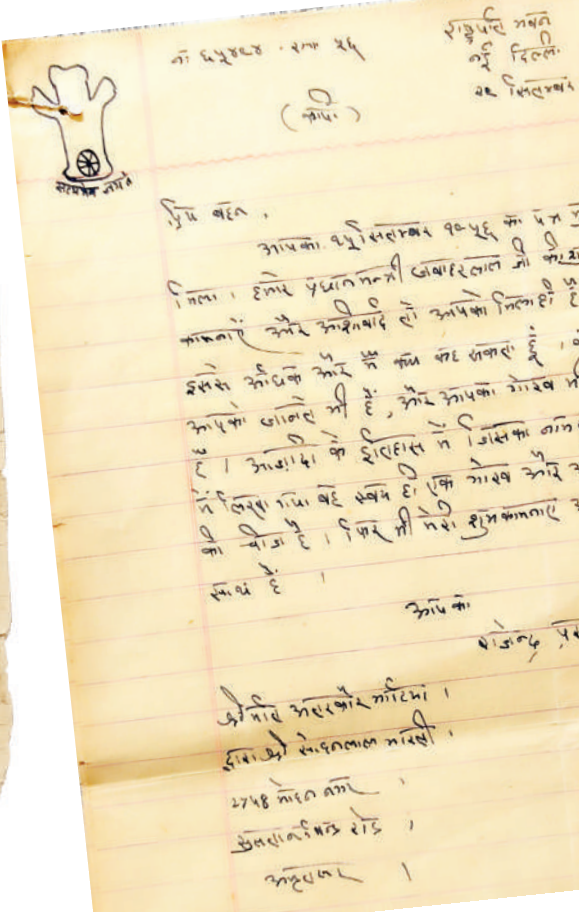 राष्ट्रपति भवन
नई दिल्ली
२१ सितम्बर
(कापी)
सत्यमेव जयते
प्रिय बहन,
आपका १५ सितम्बर १९५६ का पत्र
मिला। हमारे प्रधानमन्त्री जवाहरलाल जी की
कामनाएँ और आशिर्वाद तो आपको मिला ही
इससे अधिक और मैं क्या कह सकता हूँ।
आपको जानते भी हैं, और आपका गौरव भी
हैं। आज़ादी के इतिहास में जिसका नाम
में लिखा गया वह स्वयं ही एक गौरव और
की चीज है। फिर भी मेरी शुभकामनाएं
साथ हैं।
आपका
राजेन्द्र
श्रीमति अतरकौर भाटिया।
द्वारा श्री सोहनलाल भारती।
मोहन नगर,
सुलतानविन्ड रोड,
अमृतसर।